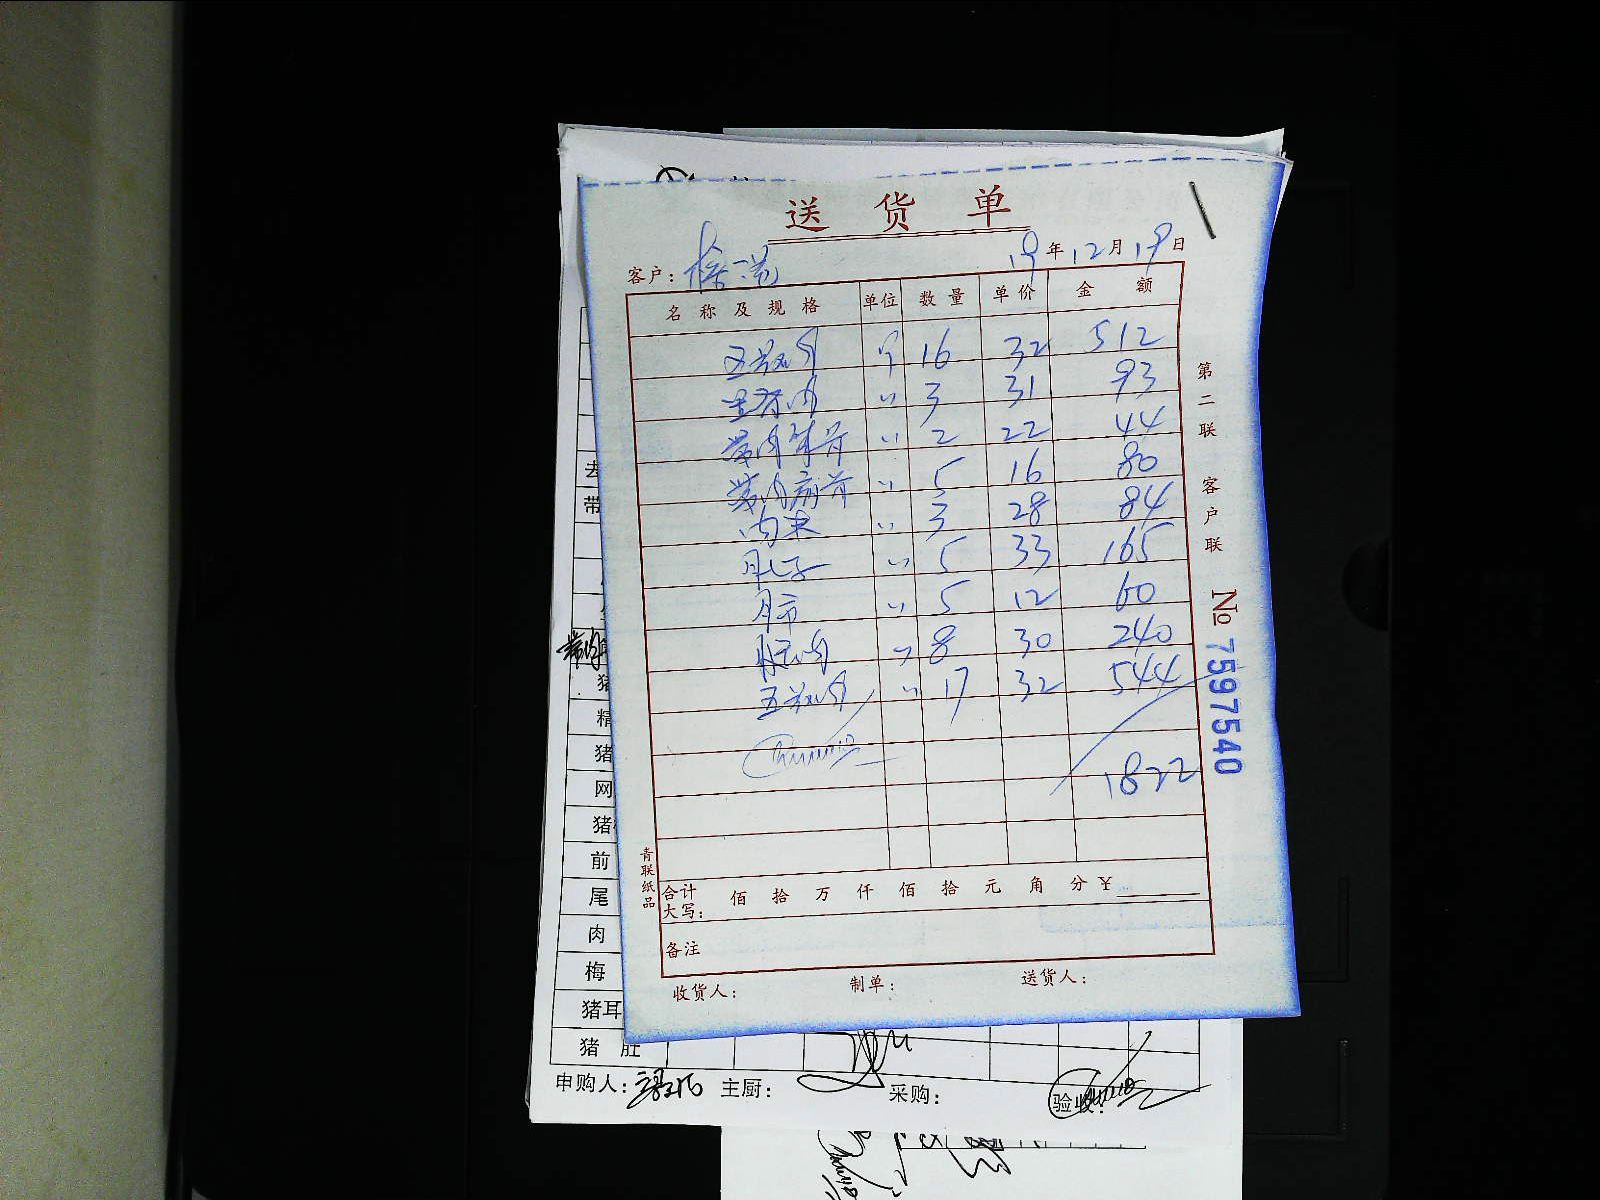 送货单
19年12月19日
客户：
名称及规格 单位 数量 单价 金额
五花肉 斤 16 32 512
里脊肉 〃 3 31 93
带肉排骨 〃 2 22 44
带肉扇骨 〃 5 16 80
肉末 〃 3 28 84
肚子 〃 5 33 165
肺 〃 5 12 60
腿肉 〃 8 30 240
五花肉 〃 17 32 544
1822
合计大写： 佰 拾 万 仟 佰 拾 元 角 分 ￥
备注
收货人： 制单： 送货人：
第二联 客户联
№ 7597540
青联纸品
去
带
带肉
猪
精
猪
网
猪
前
尾
肉
梅
猪耳
猪 肚
申购人： 主厨： 采购： 验收：